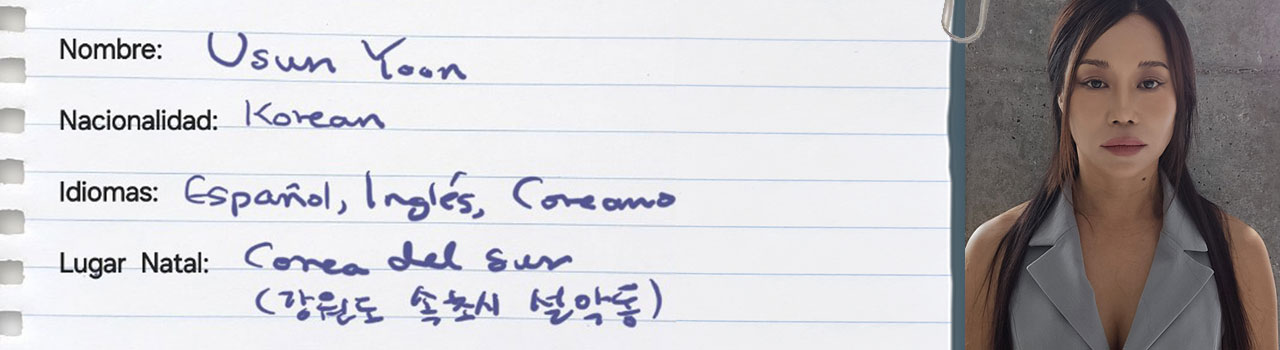 Nombre: Usun Yoon
Nacionalidad: Korean
Idiomas: Español, Inglés, Coreano
Lugar Natal: Corea del sur
(강원도 속초시 설악동)